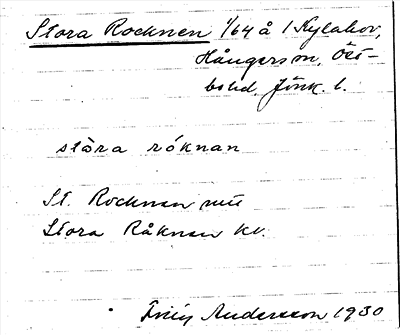 Stora Rocknen 1/64 å 1 Kylahov,
Hångers sn, Öst-
bo hd, Jönk. l.
stòra róknan
St. Rocknen mtl
Stora Råknen kv.
Andersson 1930